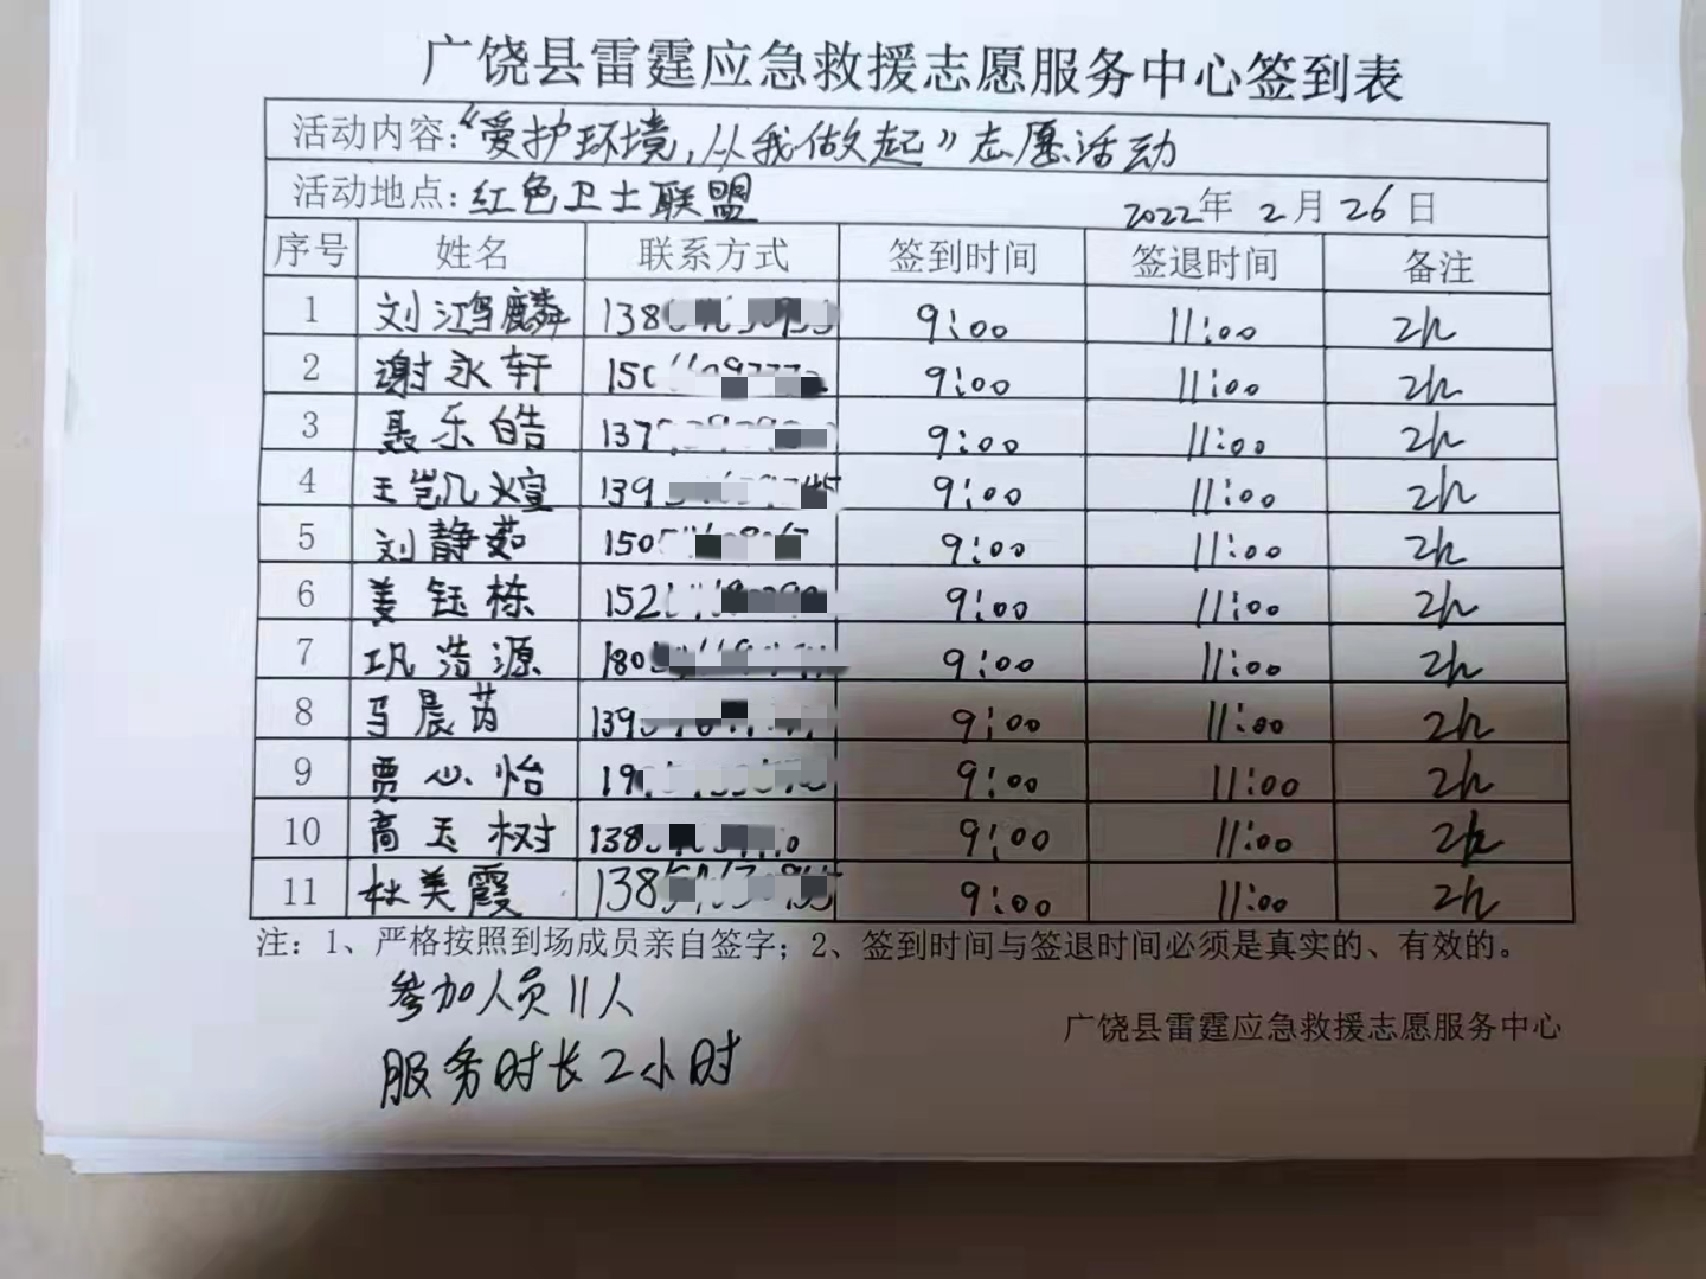 广饶县雷霆应急救援志愿服务中心签到表
活动内容:“爱护环境,从我做起”志愿活动
活动地点:红色卫士联盟 2022年 2月26日
序号 姓名 联系方式 签到时间 签退时间 备注
1 刘鸿鹏麟 138 9:00 11:00 2h
2 谢永轩 150 9:00 11:00 2h
3 聂乐皓 137 9:00 11:00 2h
4 王凯煊 139 9:00 11:00 2h
5 刘静茹 150 9:00 11:00 2h
6 姜钰栋 152 9:00 11:00 2h
7 巩浩源 180 9:00 11:00 2h
8 马晨芮 139 9:00 11:00 2h
9 贾心怡 19 9:00 11:00 2h
10 高玉树 138 9:00 11:00 2h
11 杜美霞 138 9:00 11:00 2h
注:1、严格按照到场成员亲自签字;2、签到时间与签退时间必须是真实的、有效的。
参加人员11人
广饶县雷霆应急救援志愿服务中心
服务时长2小时